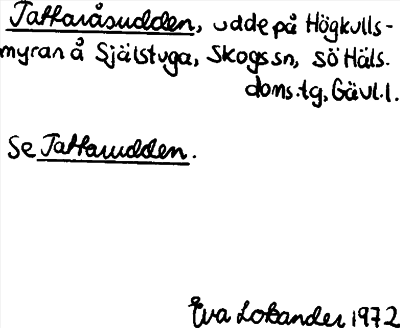 Tattaråsudden, udde på Högkulls-
myran å Själstuga, Skogs sn, sö Häls.
doms.tg, Gävl.l.
Se Tattarudden.
Eva Lobander 1972